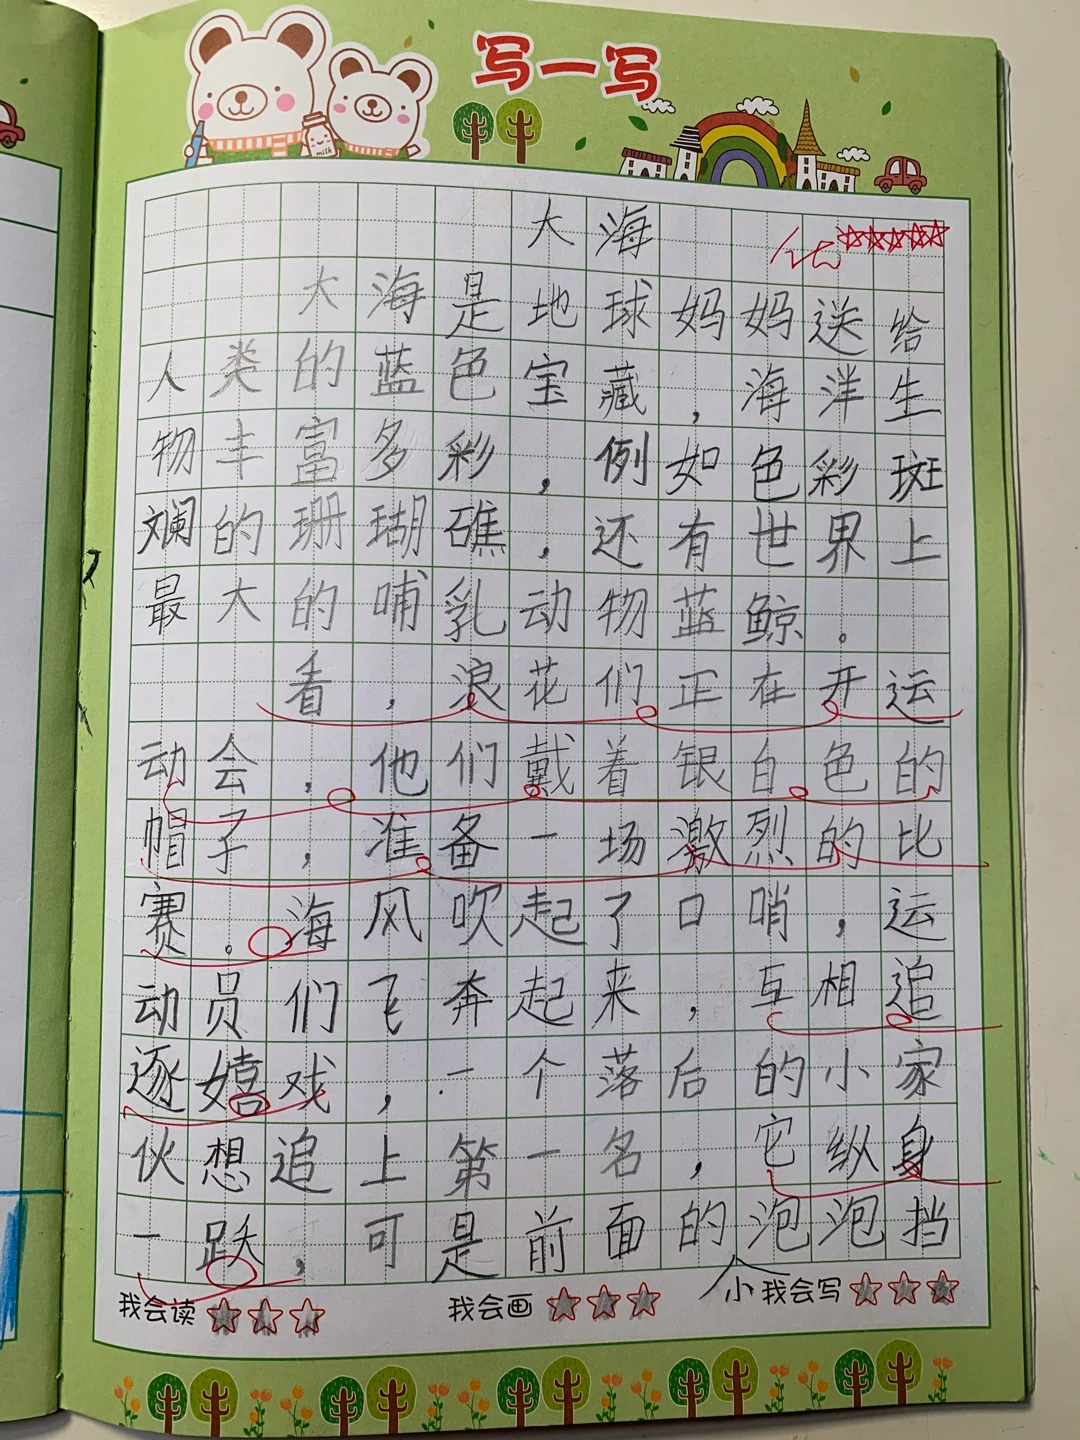 写一写
milk
大海
优☆☆☆☆☆
大海是地球妈妈送给
人类的蓝色宝藏，海洋生
物丰富多彩，例如色彩斑
斓的珊瑚礁，还有世界上
最大的哺乳动物蓝鲸。
看，浪花们正在开运
动会，他们戴着银白色的
帽子，准备一场激烈的比
赛。海风吹起了口哨，运
动员们飞奔起来，互相追
逐嬉戏，一个落后的小家
伙想追上第一名，它纵身
一跃，可是前面的泡泡挡
小
我会读☆☆☆ 我会画☆☆☆ 我会写☆☆☆